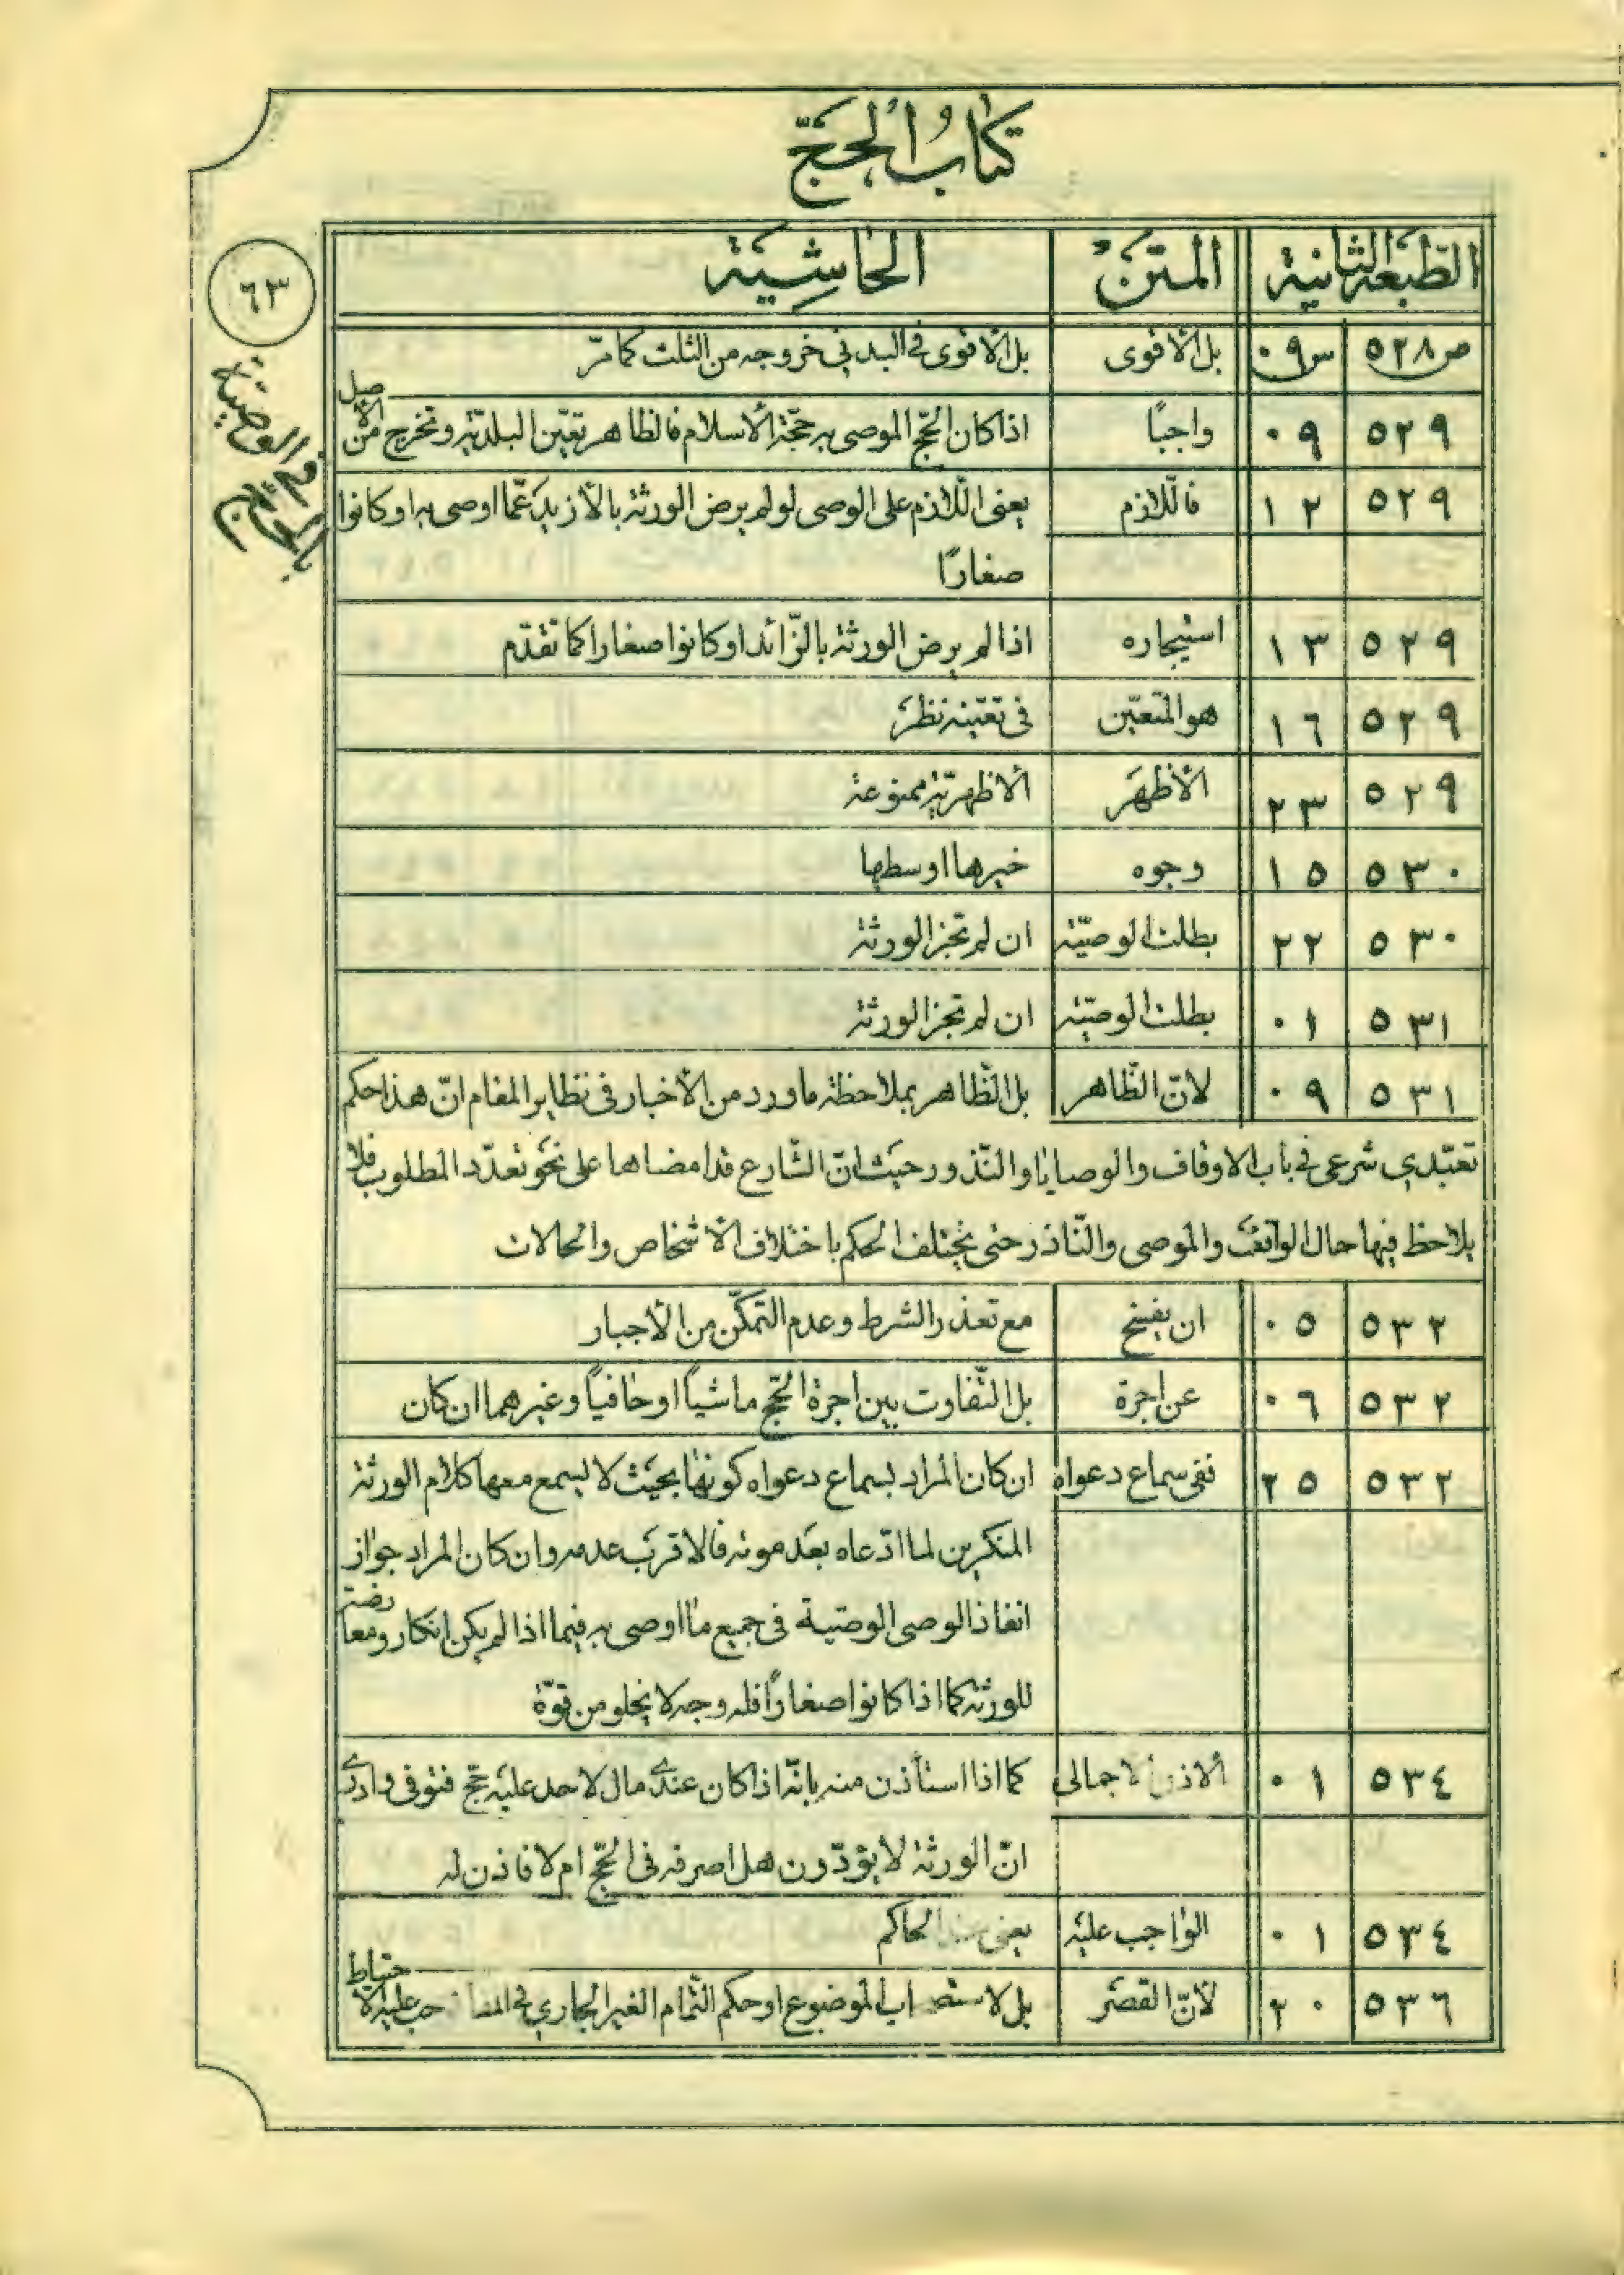 كتاب الحجّ
الطّبعة الثانية المتن الحاشية
٦٣
في الوصيّة بالحجّ
ص ٥٢٨ س ٠٩ بل الأقوى بل الأقوى في البدني خروجه من الثلث كما مرّ
٥٢٩ ٠٩ واجبًا اذا كان الحجّ الموصى به حجّة الأسلام فالظاهر تعيّن البلديّة وتخرج من الأصيل
٥٢٩ ١٢ فاللّازم يعنى اللّازم على الوصى لو لم يرض الورثة بالأزيد عمّا اوصى به او كانوا
صغارًا
٥٢٩ ١٣ استيجاره اذا لم يرض الورثة بالزّائد او كانوا صغارا كما تقدّم
٥٢٩ ١٦ هو المتعيّن في تعيّنه نظر
٥٢٩ ٢٣ الأظهر الاظهريّة ممنوعة
٥٣٠ ١٥ وجوه خيرها اوسطها
٥٣٠ ٢٢ بطلت الوصيّة ان لم تجز الورثة
٥٣١ ٠١ بطلت الوصيّة ان لم تجز الورثة
٥٣١ ٠٩ لانّ الظّاهر بل الظّاهر بملاحظة ما ورد من الأخبار في نظاير المقام انّ هذا حكم
تعبّدي شرعى في باب الاوقاف والوصايا والنّذور حيث انّ الشّارع قد امضاها على نحو تعدّد المطلوب فلا
يلاحظ فيها حال الواقف والموصى والنّاذر حتى يختلف الحكم باختلاف الأشخاص والحالات
٥٣٢ ٠٥ ان يفسخ مع تعذر الشرط وعدم التمكّن من الأجبار
٥٣٢ ٠٦ عن اجرة بل التّفاوت بين اجرة الحجّ ماشياً او حافياً وغيرهما ان كان
٥٣٢ ٢٥ نفى سماع دعواه ان كان المراد بسماع دعواه كونها بحيث لا يسمع معها كلام الورثة
المنكرين لما ادّعاه بعد موته فالاقرب عدمه وان كان المراد جواز
انفاذ الوصى الوصيّة في جميع ما اوصى به فيما اذا لم يكن انكار ومعارضة
للورثة كما اذا كانوا صغارًا فله وجه لا يخلو من قوّة
٥٣٤ ٠١ الاذن الاجمالى كما اذا استأذن منه بانّه اذا كان عندى مال لاحد عليه حجّ فتوفى وادرى
انّ الورثة لا يؤدّون هل اصرفه في الحجّ ام لا فاذن له
٥٣٤ ٠١ الواجب عليه يعنى الحاكم
٥٣٦ ٢٠ لأنّ القصر بل لاستصحاب الموضوع او حكم التّمام الغير الجارى في عليه الاحتياط